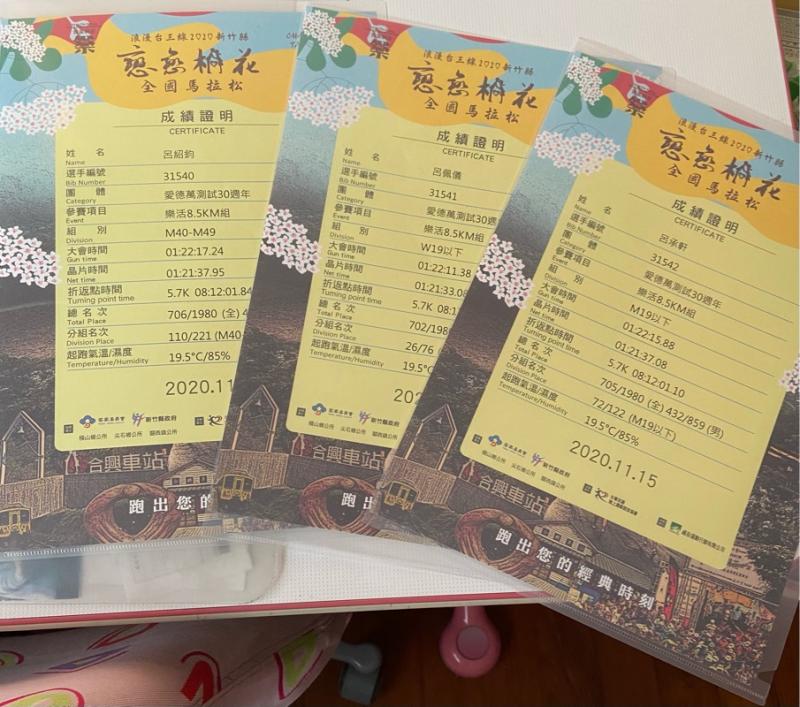 浪漫台三線2020新竹縣
戀戀桐花
全國馬拉松
成績證明
CERTIFICATE
姓 名 呂紹鈞
Name
選手編號 31540
Bib Number
團 體 愛德萬測試30週年
Category
參賽項目 樂活8.5KM組
Event
組 別 M40-M49
Division
大會時間 01:22:17.24
Gun time
晶片時間 01:21:37.95
Net time
折返點時間 5.7K 08:12:01.84
Turning point time
總 名 次 706/1980 (全) 4
Total Place
分組名次 110/221 (M40-
Division Place
起跑氣溫/濕度 19.5°C/85%
Temperature/Humidity
2020.11
新竹縣政府
橫山鄉公所 尖石鄉公所 關西鎮公所
合興車站
跑出您的
浪漫台三線2020新竹縣
戀戀桐花
全國馬拉松
成績證明
CERTIFICATE
姓 名 呂佩儀
Name
選手編號 31541
Bib Number
團 體 愛德萬測試30週
Category
參賽項目 樂活8.5KM組
Event
組 別 W19以下
Division
大會時間 01:22:11.38
Gun time
晶片時間 01:21:33.0
Net time
折返點時間 5.7K 08:1
Turning point time
總 名 次 702/198
Total Place
分組名次 26/76
Division Place
起跑氣溫/濕度 19.5°C
Temperature/Humidity
202
新竹縣政府
橫山鄉公所 尖石鄉公所 關西鎮公所
合興車站
跑出
浪漫台三線2020新竹縣
戀戀桐花
全國馬拉松
成績證明
CERTIFICATE
姓 名 呂承軒
Name
選手編號 31542
Bib Number
團 體 愛德萬測試30週年
Category
參賽項目 樂活8.5KM組
Event
組 別 M19以下
Division
大會時間 01:22:15.88
Gun time
晶片時間 01:21:37.08
Net time
折返點時間 5.7K 08:12:01.10
Turning point time
總 名 次 705/1980 (全) 432/859 (男)
Total Place
分組名次 72/122 (M19以下)
Division Place
起跑氣溫/濕度 19.5°C/85%
Temperature/Humidity
2020.11.15
新竹縣政府
橫山鄉公所 尖石鄉公所 關西鎮公所
合興車站
跑出您的經典時刻